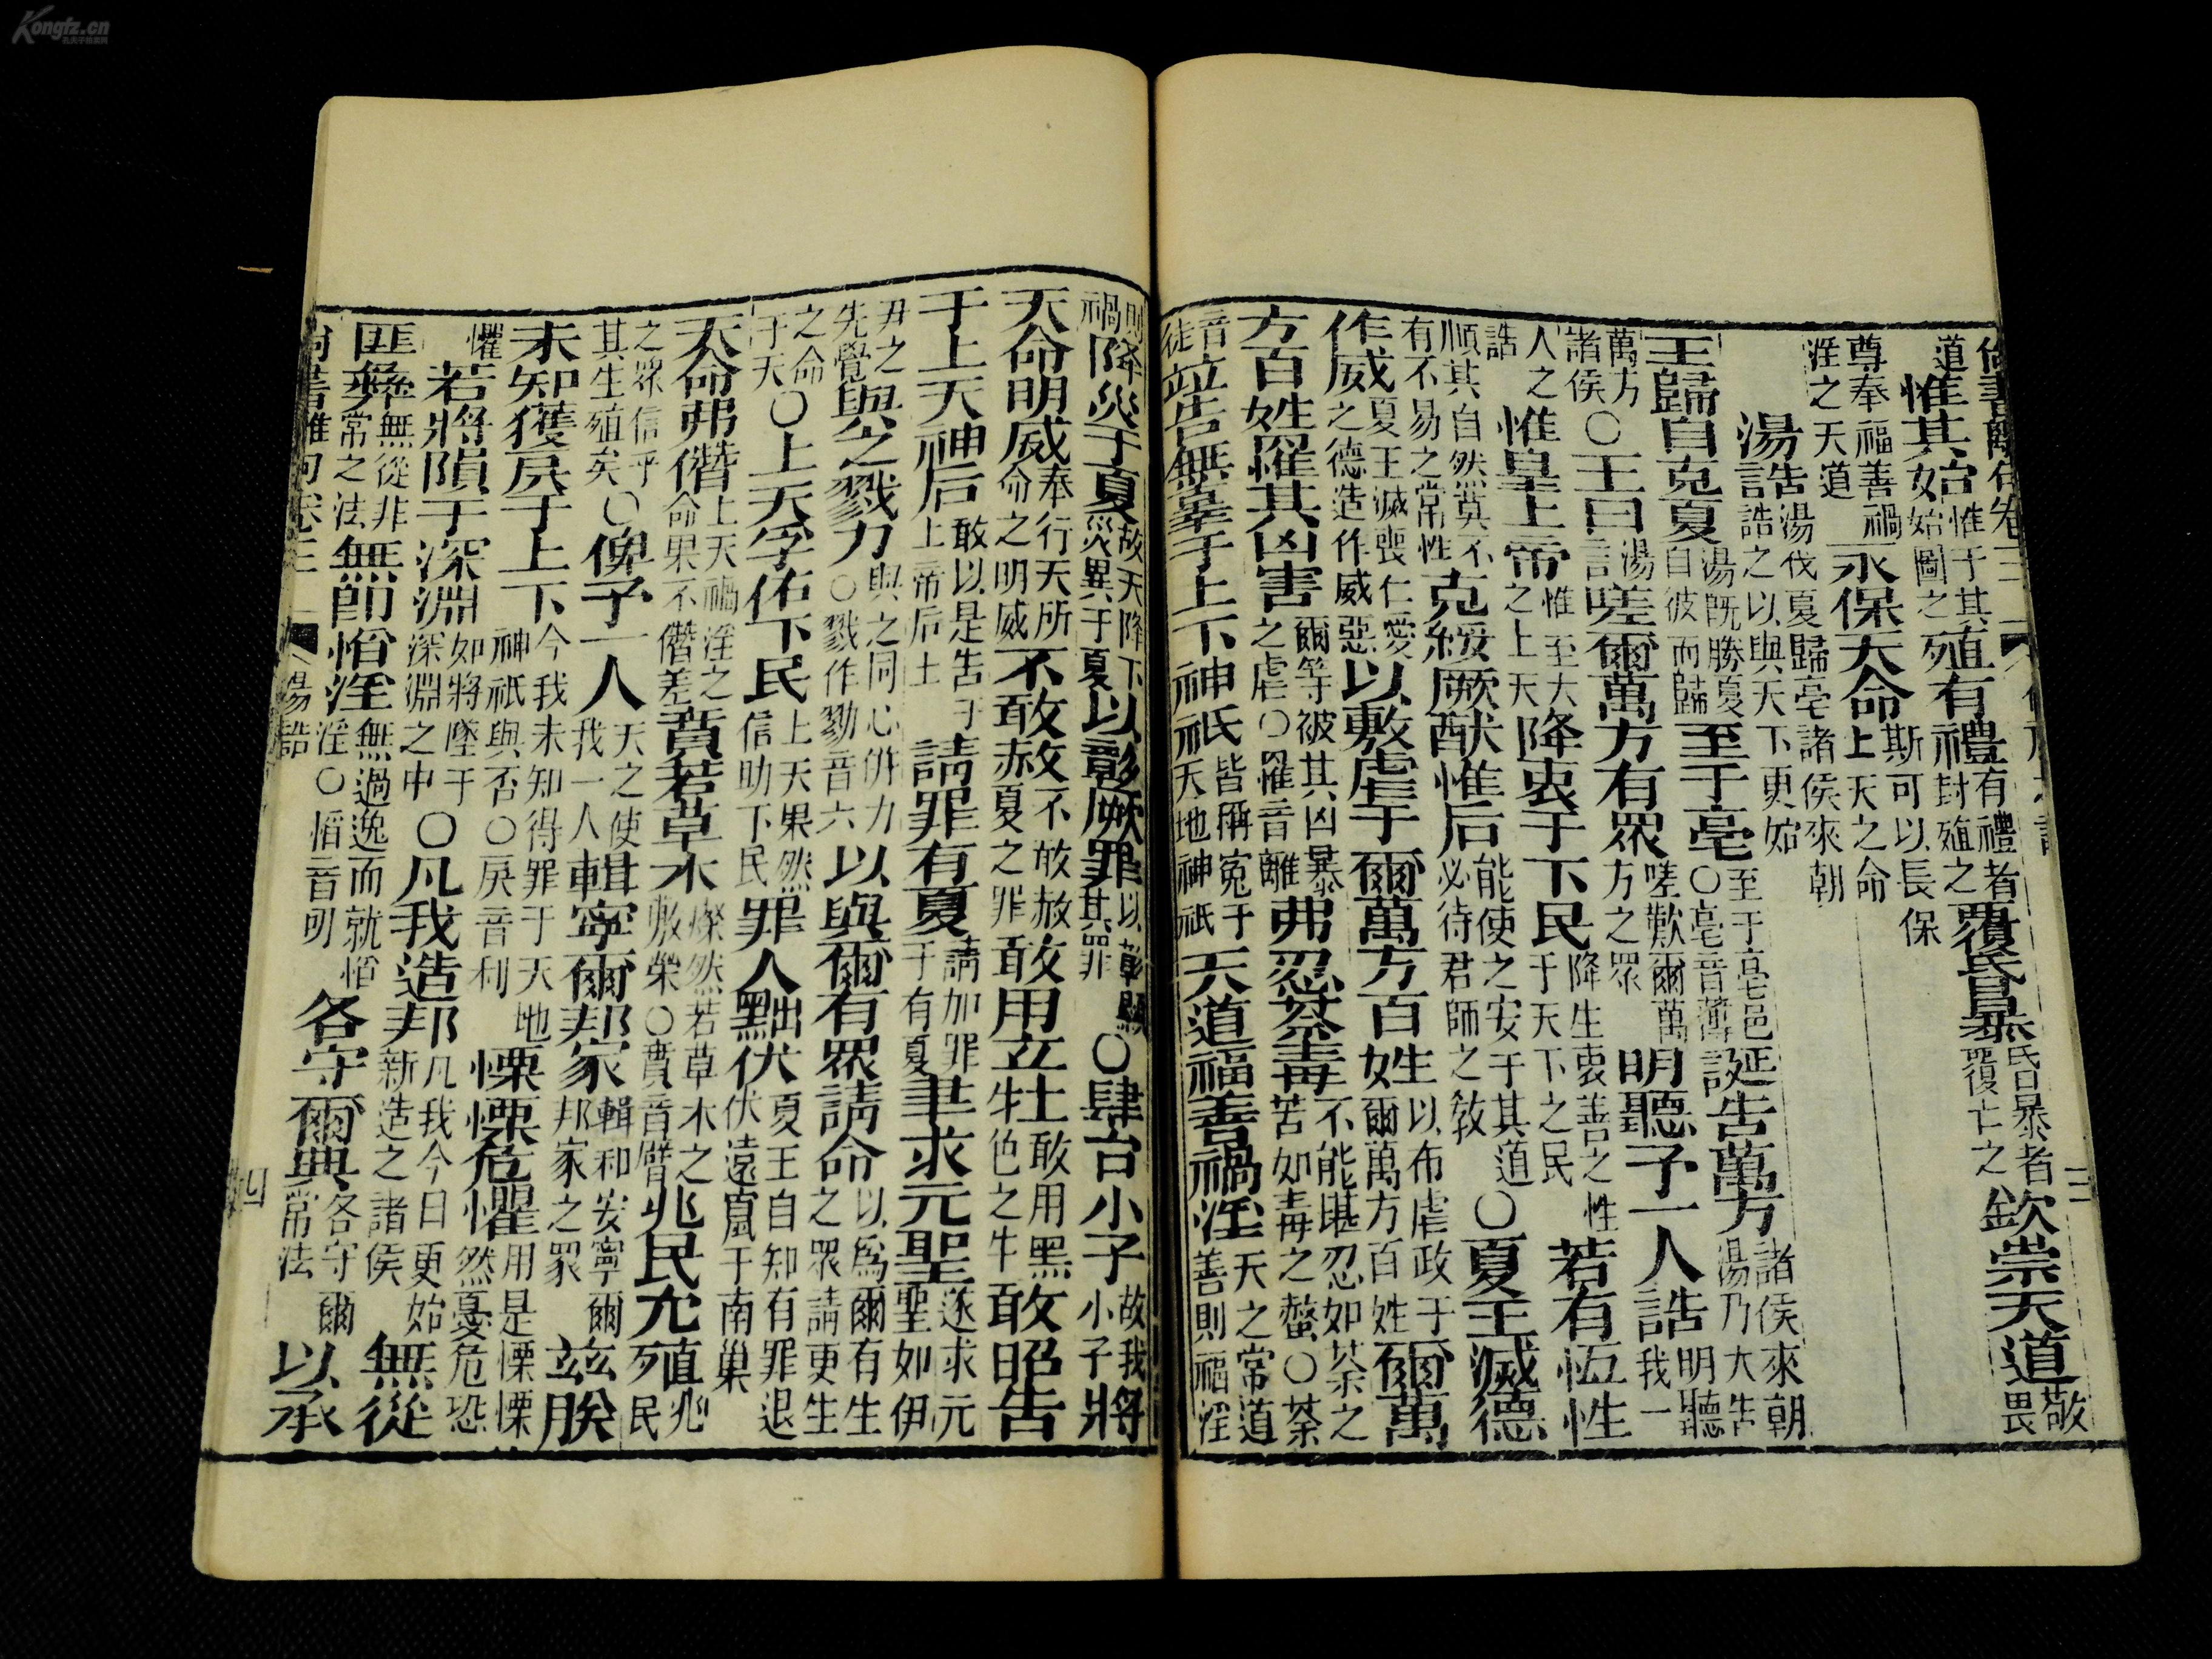 尚書離句卷三 仲虺之誥 三
道惟其始惟于其始圖之殖有禮有禮者封殖之覆昏暴昏暴者覆亡之欽崇天道敬畏
尊奉福善禍淫之天道永保天命斯可以長保上天之命
湯誥湯伐夏歸亳諸侯來朝誥之以與天下更始
王歸自克夏湯既勝夏自彼而歸至于亳至于亳邑○亳音薄誕告萬方諸侯來朝湯乃大告
萬方諸侯○王曰湯言嗟爾萬方有眾嗟歎爾萬方之眾明聽予一人誥明聽我一
人之誥惟皇上帝惟至大之上天降衷于下民降生衷善之性于天下之民若有恆性
順其自然莫不有不易之常性克綏厥猷惟后能使之安于其道必待君師之教○夏王滅德
作威夏王滅喪仁愛之德造作威惡以敷虐于爾萬方百姓以布虐政于爾萬方百姓爾萬
方百姓罹其凶害爾等被其凶暴之虐○罹音離弗忍荼毒不能堪忍如荼之苦如毒之螫○荼
音徒並告無辜于上下神祇皆稱冤于天地神祇天道福善禍淫天之常道善則福淫
則禍降災于夏故天降下災異于夏以彰厥罪以彰顯其罪○肆台小子故我小子將
天命明威奉行天所命之明威不敢赦不敢赦夏之罪敢用玄牡敢用黑色之牛敢昭告
于上天神后敢以是告于上帝后土請罪有夏請加罪于有夏聿求元聖遂求元聖如伊
尹之先覺與之戮力與之同心併力○戮作勠音六以與爾有眾請命以爲爾有生之眾請更生
之命于天○上天孚佑下民上天果然信助下民罪人黜伏夏王自知有罪退伏遠竄于南巢
天命弗僭上天禍淫之命果不僭差賁若草木燦然若草木之敷榮○賁音臂兆民允殖兆民
之眾信乎其生殖矣○俾予一人天之使我一人輯寧爾邦家輯和安寧爾邦家之眾茲朕
未知獲戾于上下今我未知得罪于天地神祇與否○戾音利慄慄危懼用是慄慄然憂危恐
懼若將隕于深淵如將墜于深淵之中○凡我造邦凡我今日更始新造之諸侯無從
匪彝無從非常之法無即慆淫無過逸而就慆淫○慆音叨各守爾典各守爾常法以承
尚書離句卷三 湯誥 四
Kongfz.cn